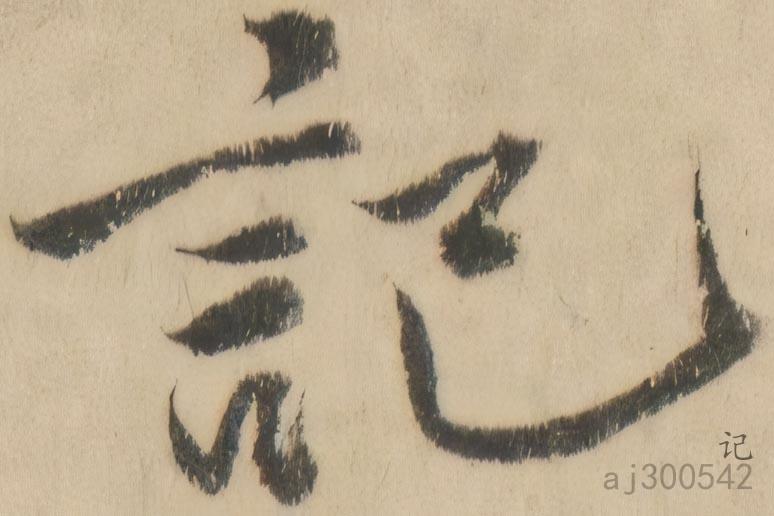 記
记
aj300542